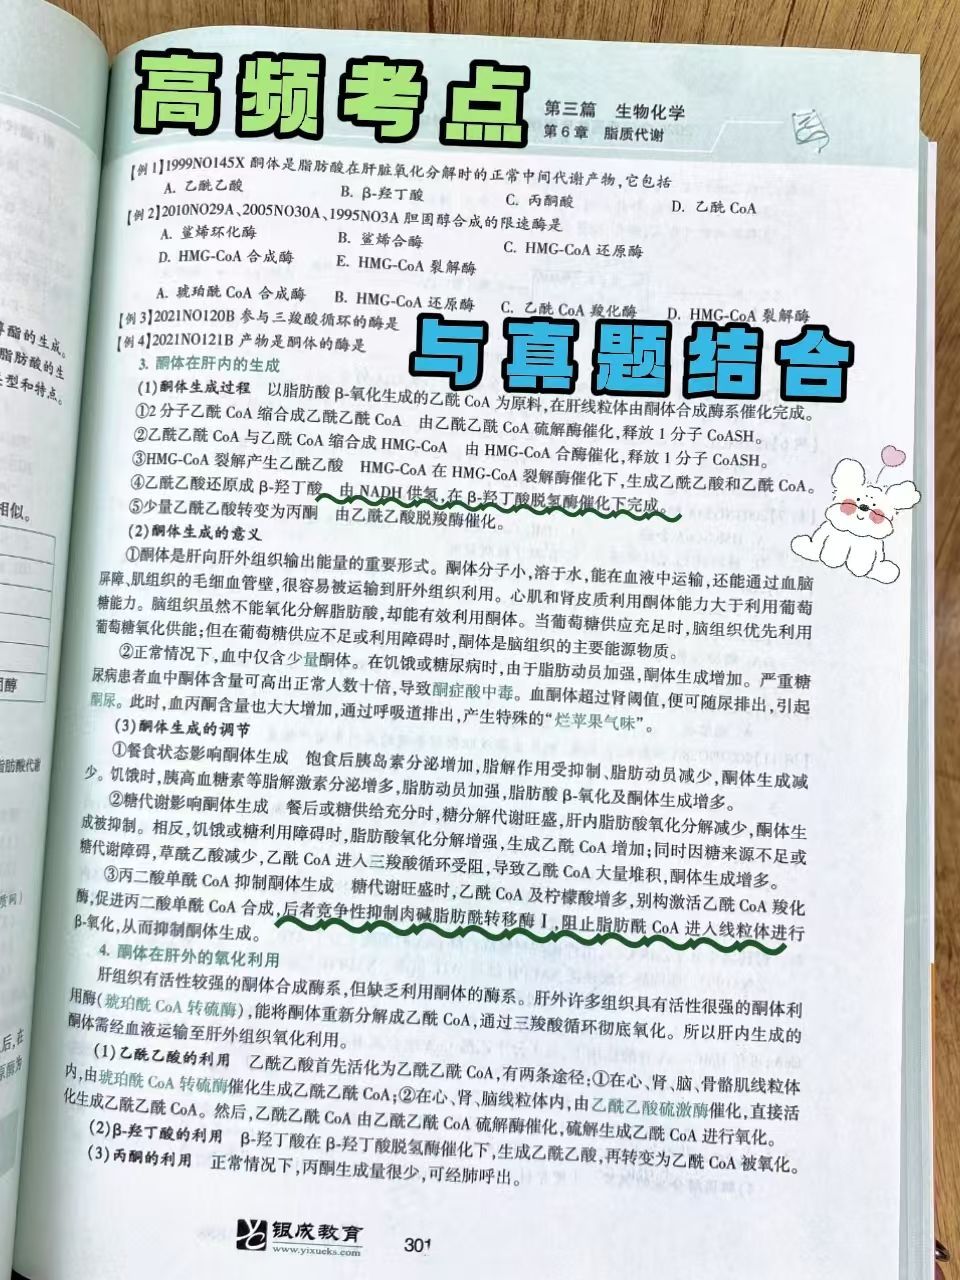 高频考点
第三篇 生物化学
第6章 脂质代谢
【例1】1999NO145X 酮体是脂肪酸在肝脏氧化分解时的正常中间代谢产物,它包括
A. 乙酰乙酸 B. β-羟丁酸 C. 丙酮酸 D. 乙酰 CoA
【例2】2010NO29A、2005NO30A、1995NO3A 胆固醇合成的限速酶是
A. 鲨烯环化酶 B. 鲨烯合酶 C. HMG-CoA 还原酶
D. HMG-CoA 合成酶 E. HMG-CoA 裂解酶
A. 琥珀酰 CoA 合成酶 B. HMG-CoA 还原酶 C. 乙酰 CoA 羧化酶 D. HMG-CoA 裂解酶
【例3】2021NO120B 参与三羧酸循环的酶是
【例4】2021NO121B 产物是酮体的酶是
与真题结合
3. 酮体在肝内的生成
(1)酮体生成过程 以脂肪酸 β-氧化生成的乙酰 CoA 为原料,在肝线粒体由酮体合成酶系催化完成。
①2 分子乙酰 CoA 缩合成乙酰乙酰 CoA 由乙酰乙酰 CoA 硫解酶催化,释放 1 分子 CoASH。
②乙酰乙酰 CoA 与乙酰 CoA 缩合成 HMG-CoA 由 HMG-CoA 合酶催化,释放 1 分子 CoASH。
③HMG-CoA 裂解产生乙酰乙酸 HMG-CoA 在 HMG-CoA 裂解酶催化下,生成乙酰乙酸和乙酰 CoA。
④乙酰乙酸还原成 β-羟丁酸 由 NADH 供氢,在 β-羟丁酸脱氢酶催化下完成。
⑤少量乙酰乙酸转变为丙酮 由乙酰乙酸脱羧酶催化。
(2)酮体生成的意义
①酮体是肝向肝外组织输出能量的重要形式。酮体分子小,溶于水,能在血液中运输,还能通过血脑
屏障、肌组织的毛细血管壁,很容易被运输到肝外组织利用。心肌和肾皮质利用酮体能力大于利用葡萄
糖能力。脑组织虽然不能氧化分解脂肪酸,却能有效利用酮体。当葡萄糖供应充足时,脑组织优先利用
葡萄糖氧化供能;但在葡萄糖供应不足或利用障碍时,酮体是脑组织的主要能源物质。
②正常情况下,血中仅含少量酮体。在饥饿或糖尿病时,由于脂肪动员加强,酮体生成增加。严重糖
尿病患者血中酮体含量可高出正常人数十倍,导致酮症酸中毒。血酮体超过肾阈值,便可随尿排出,引起
酮尿。此时,血丙酮含量也大大增加,通过呼吸道排出,产生特殊的“烂苹果气味”。
(3)酮体生成的调节
①餐食状态影响酮体生成 饱食后胰岛素分泌增加,脂解作用受抑制、脂肪动员减少,酮体生成减
少。饥饿时,胰高血糖素等脂解激素分泌增多,脂肪动员加强,脂肪酸 β-氧化及酮体生成增多。
②糖代谢影响酮体生成 餐后或糖供给充分时,糖分解代谢旺盛,肝内脂肪酸氧化分解减少,酮体生
成被抑制。相反,饥饿或糖利用障碍时,脂肪酸氧化分解增强,生成乙酰 CoA 增加;同时因糖来源不足或
糖代谢障碍,草酰乙酸减少,乙酰 CoA 进入三羧酸循环受阻,导致乙酰 CoA 大量堆积,酮体生成增多。
③丙二酸单酰 CoA 抑制酮体生成 糖代谢旺盛时,乙酰 CoA 及柠檬酸增多,别构激活乙酰 CoA 羧化
酶,促进丙二酸单酰 CoA 合成,后者竞争性抑制肉碱脂肪酰转移酶Ⅰ,阻止脂肪酰 CoA 进入线粒体进行
β-氧化,从而抑制酮体生成。
4. 酮体在肝外的氧化利用
肝组织有活性较强的酮体合成酶系,但缺乏利用酮体的酶系。肝外许多组织具有活性很强的酮体利
用酶(琥珀酰 CoA 转硫酶),能将酮体重新分解成乙酰 CoA,通过三羧酸循环彻底氧化。所以肝内生成的
酮体需经血液运输至肝外组织氧化利用。
(1)乙酰乙酸的利用 乙酰乙酸首先活化为乙酰乙酰 CoA,有两条途径:①在心、肾、脑、骨骼肌线粒体
内,由琥珀酰 CoA 转硫酶催化生成乙酰乙酰 CoA;②在心、肾、脑线粒体内,由乙酰乙酸硫激酶催化,直接活
化生成乙酰乙酰 CoA。然后,乙酰乙酰 CoA 由乙酰乙酰 CoA 硫解酶催化,硫解生成乙酰 CoA 进行氧化。
(2)β-羟丁酸的利用 β-羟丁酸在 β-羟丁酸脱氢酶催化下,生成乙酰乙酸,再转变为乙酰 CoA 被氧化。
(3)丙酮的利用 正常情况下,丙酮生成量很少,可经肺呼出。
银成教育
www.yixueks.com
301